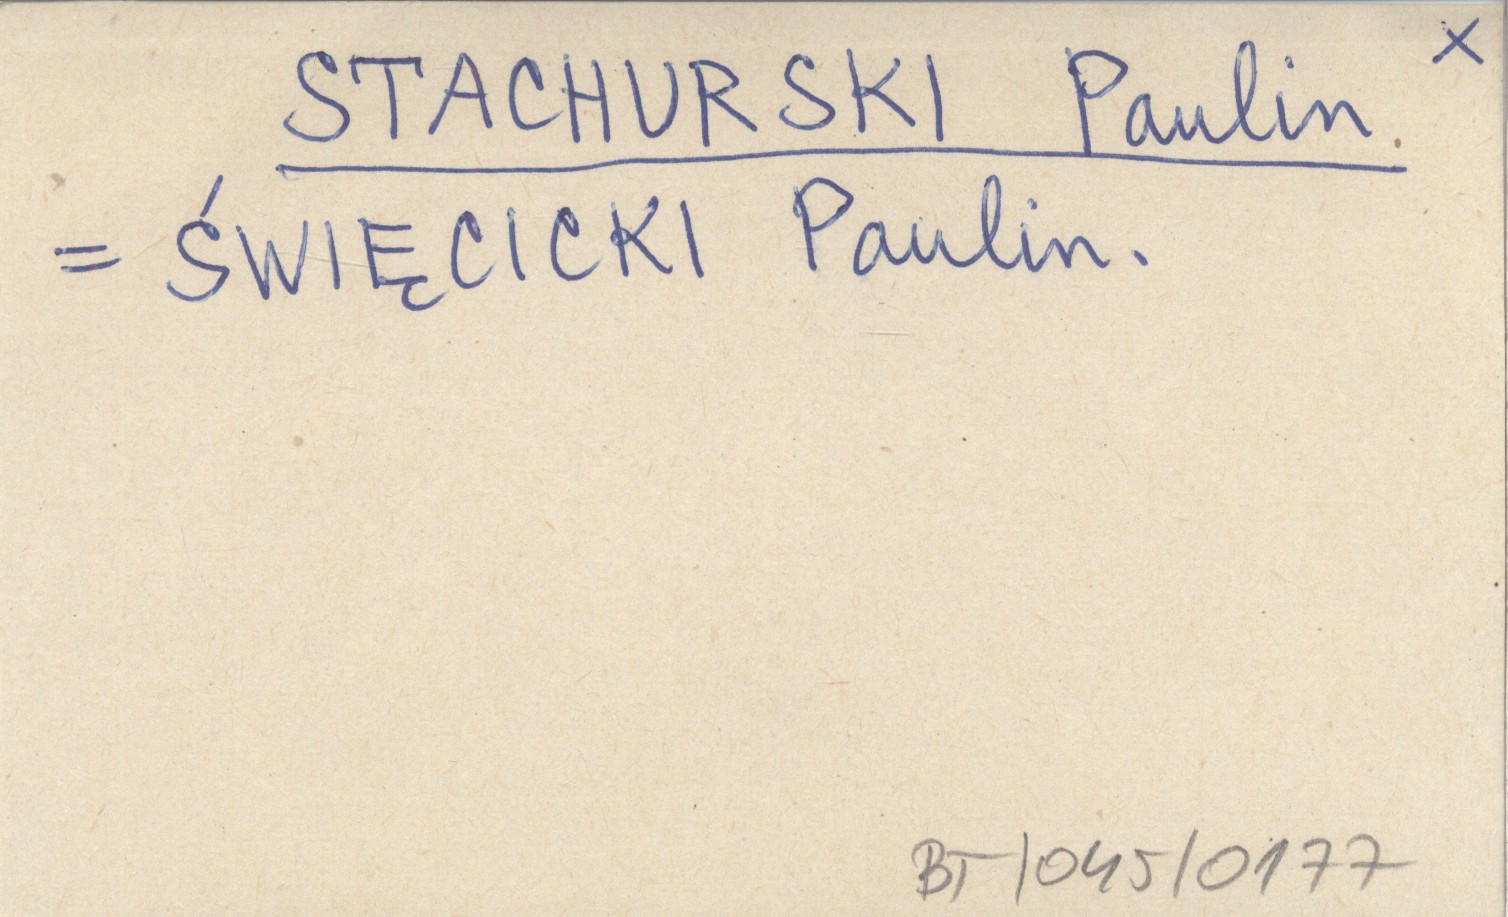 x
STACHURSKI Paulin
= ŚWIĘCICKI Paulin.
BT/045/0177